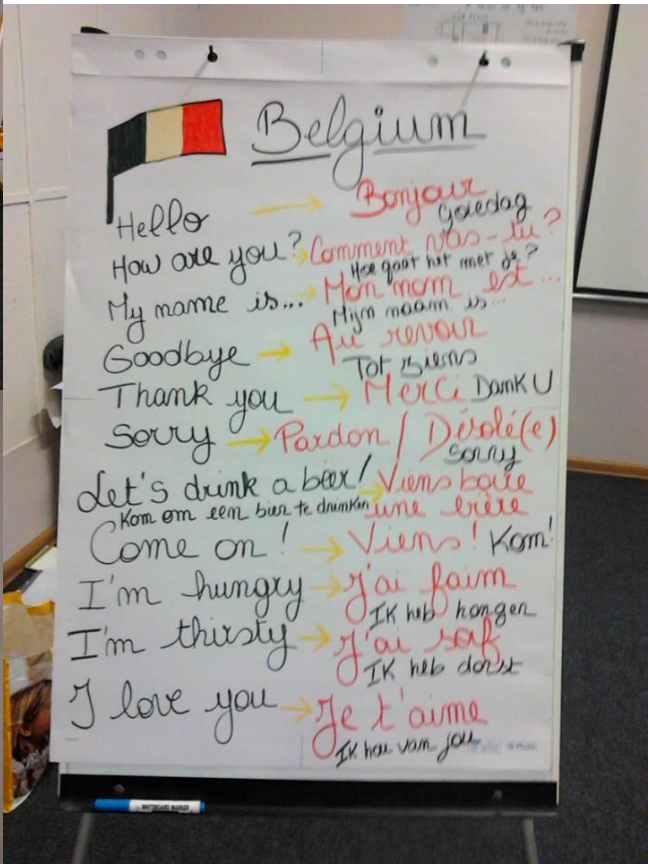 Belgium
Hello → Bonjour
Goiedag
How are you? → Comment vas-tu?
Hoe gaat het met je?
My name is... → Mon nom est...
Mijn naam is...
Goodbye → Au revoir
Tot ziens
Thank you → Merci Dank U
Sorry → Pardon / Désolé(e)
Sorry
Let's drink a beer! → Viens boire
Kom om een bier te drinken une bière
Come on! → Viens! Kom!
I'm hungry → J'ai faim
Ik heb honger
I'm thirsty → J'ai soif
Ik heb dorst
I love you → Je t'aime
Ik hou van jou
WHITEBOARD MARKER